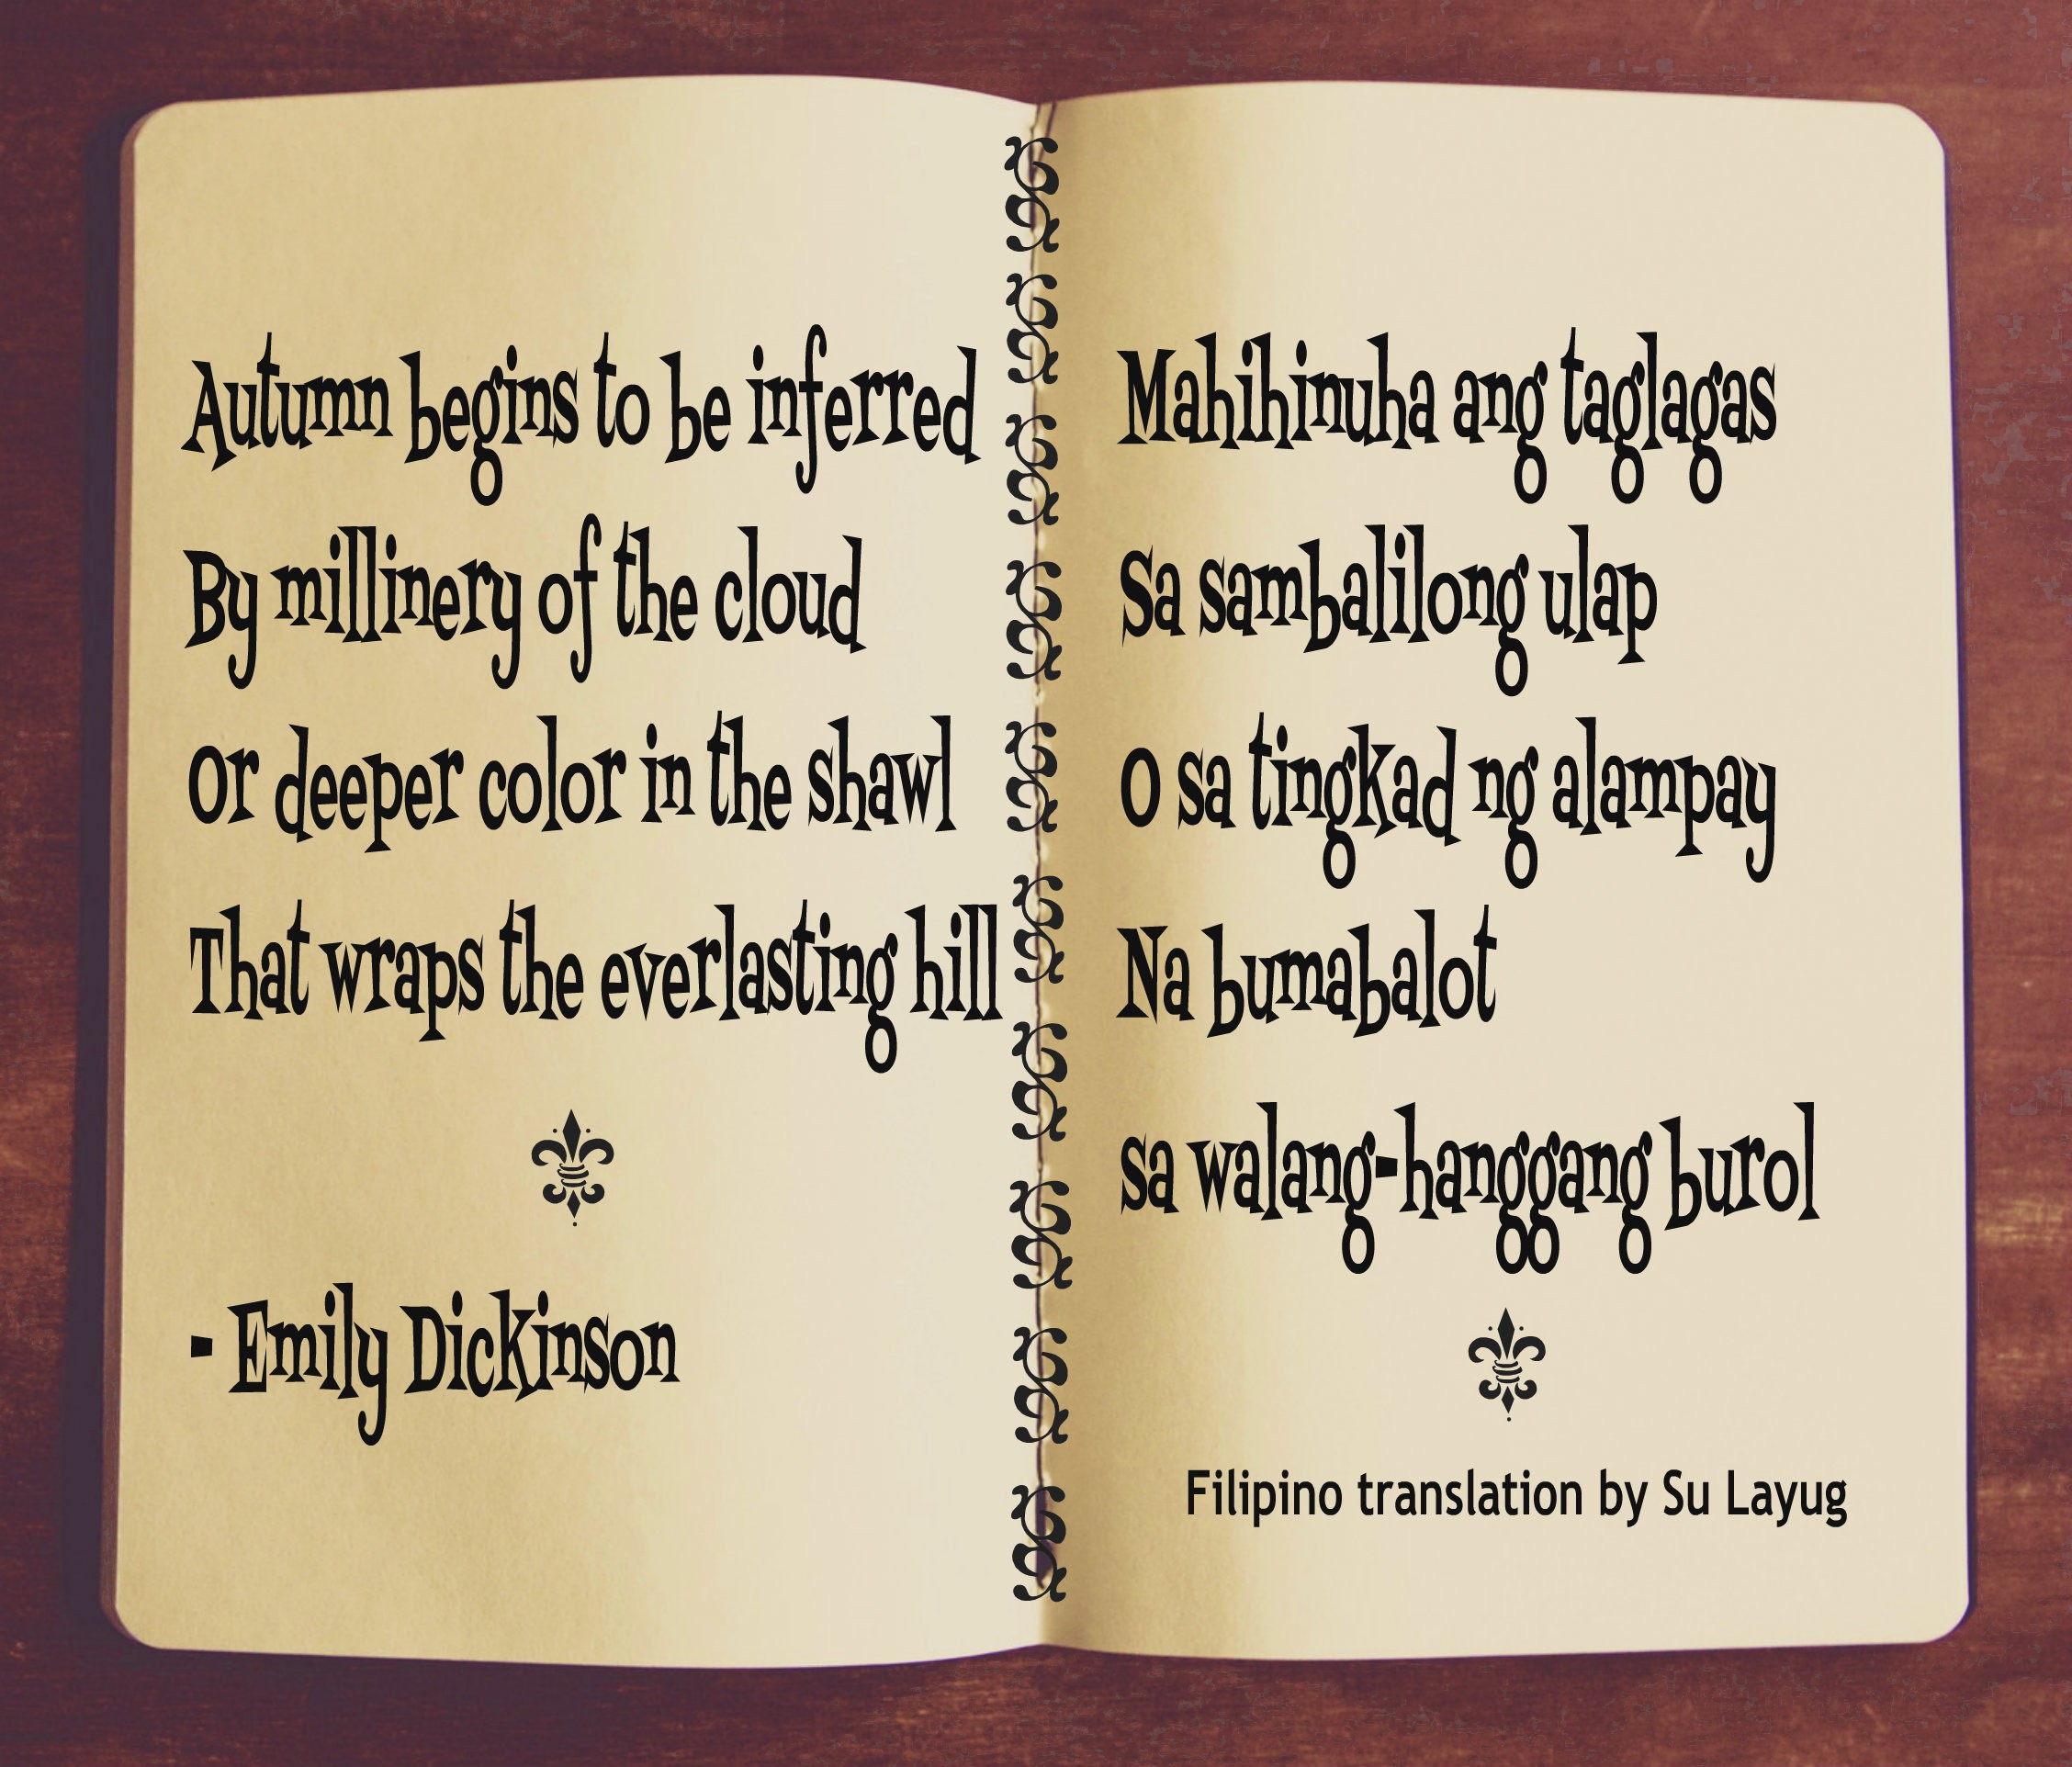 Autumn begins to be inferred
By millinery of the cloud
Or deeper color in the shawl
That wraps the everlasting hill
- Emily Dickinson
Mahihinuha ang taglagas
Sa sambalilong ulap
O sa tingkad ng alampay
Na bumabalot
sa walang-hanggang burol
Filipino translation by Su Layug